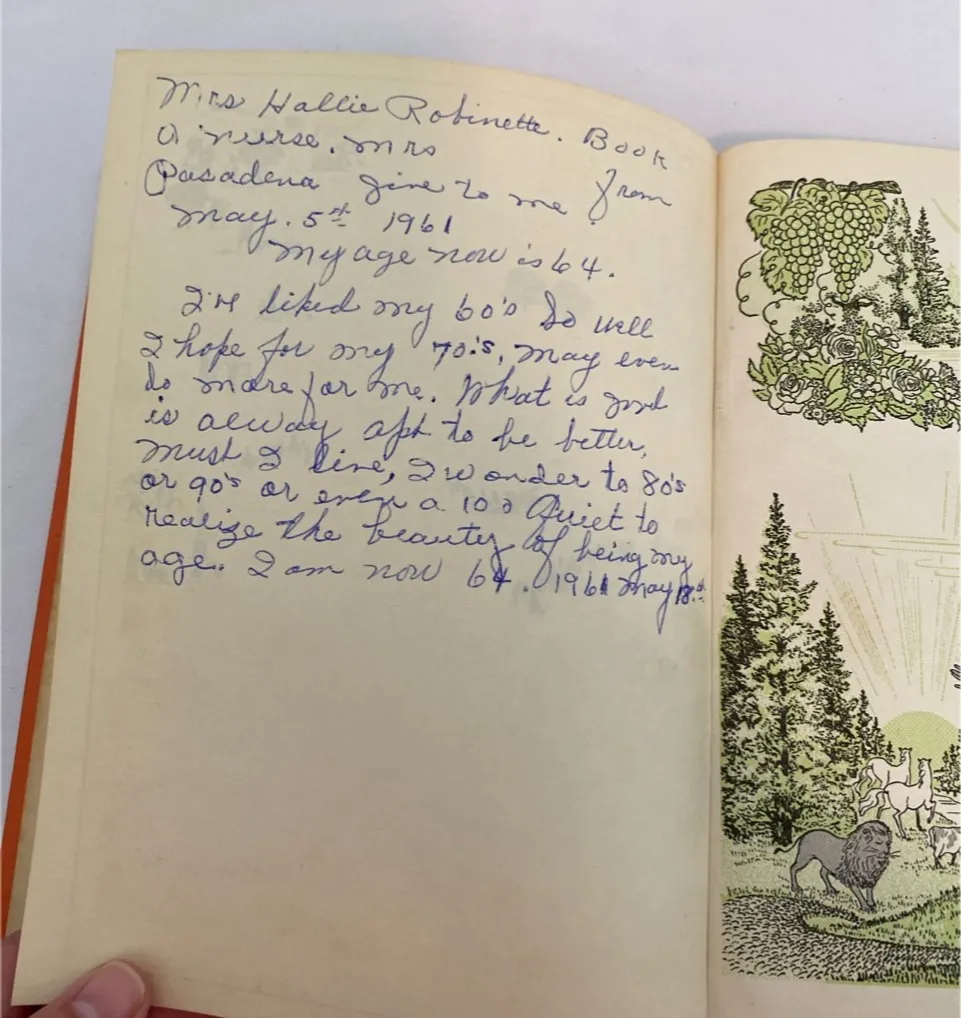 Mrs Hallie Robinette. Book
a nurse. Mrs from
Pasadena give to me
May. 5th 1961
My age now is 64.
I've liked my 60's so well
I hope for my 70's, may even
do more for me. What is good
is alway apt to be better,
must I live, I wonder to 80's
or 90's or even a 100 Quiet to
realize the beauty of being my
age. I am now 64. 1961 May 18.th